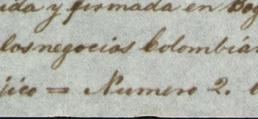 ida y firmada en Bog
los negocios Colombia
jico = Numero 2.